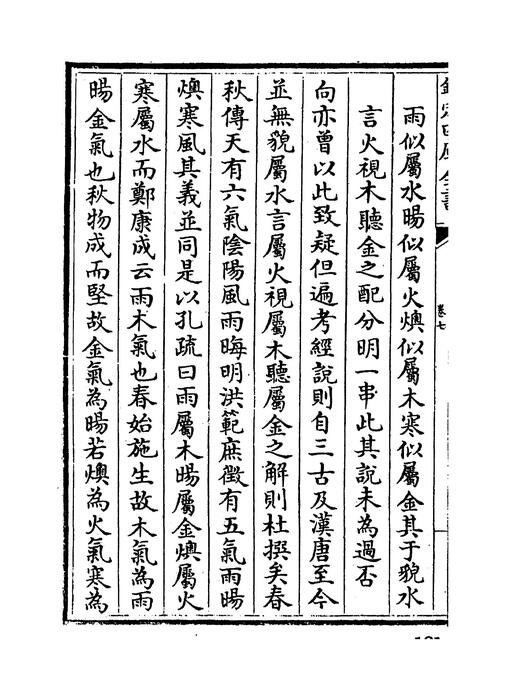 欽定四庫全書
卷七
雨似屬水暘似屬火燠似屬木寒似屬金其于貌水
言火視木聽金之配分明一串此其說未為過否
向亦曾以此致疑但遍考經說則自三古及漢唐至今
並無貌屬水言屬火視屬木聽屬金之解則杜撰矣春
秋傳天有六氣陰陽風雨晦明洪範庶徵有五氣雨暘
燠寒風其義並同是以孔疏曰雨屬木暘屬金燠屬火
寒屬水而鄭康成云雨木氣也春始施生故木氣為雨
暘金氣也秋物成而堅故金氣為暘若燠為火氣寒為